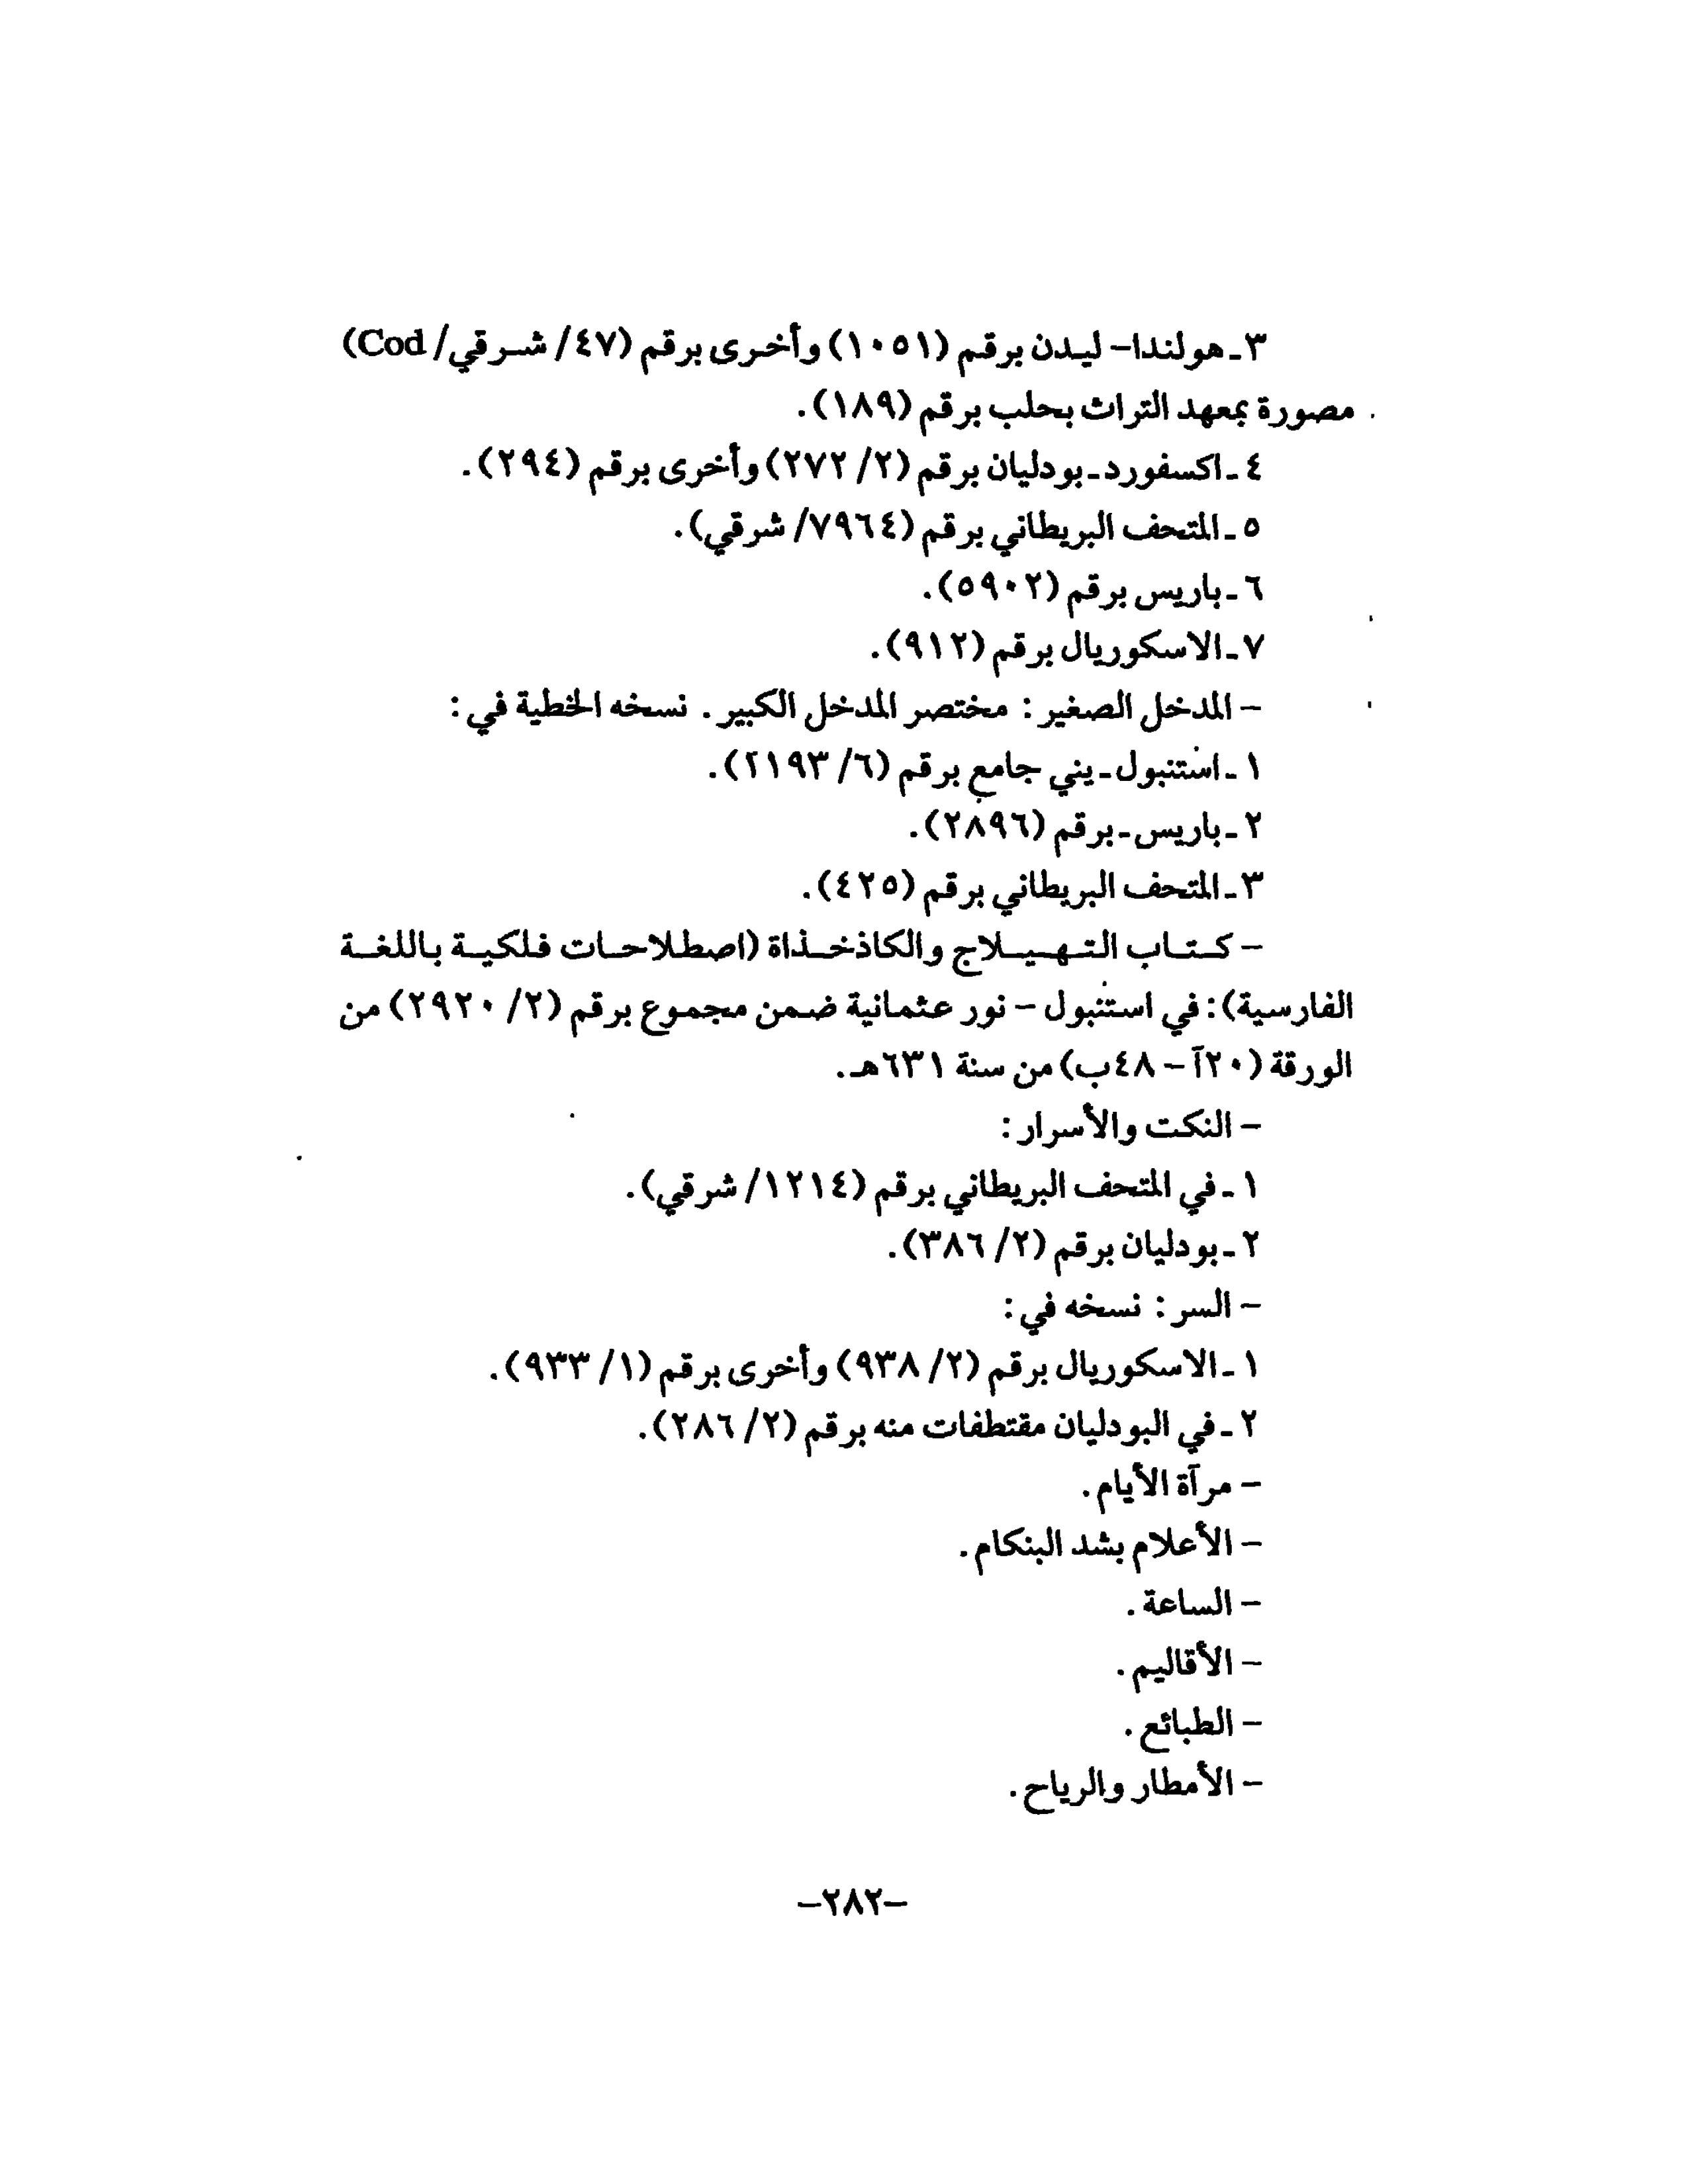 ٣ـ هولندا– ليدن برقم (١٠٥١) وأخرى برقم (٤٧/ شرقي/ Cod)
مصورة بمعهد التراث بحلب برقم (١٨٩).
٤ ـ اكسفورد ـ بودليان برقم (٢/ ٢٧٢) وأخرى برقم (٢٩٤).
٥ ـ المتحف البريطاني برقم (٧٩٦٤/ شرقي).
٦ ـ باريس برقم (٥٩٠٢).
٧ ـ الاسكوريال برقم (٩١٢).
– المدخل الصغير : مختصر المدخل الكبير . نسخه الخطية في :
١ ـ استنبول ـ يني جامع برقم (٦/ ٢١٩٣).
٢ ـ باريس ـ برقم (٢٨٩٦).
٣ ـ المتحف البريطاني برقم (٤٢٥).
– كتاب التهيلاج والكاذخذاة (اصطلاحات فلكية باللغة
الفارسية): في استنبول – نور عثمانية ضمن مجموع برقم (٢/ ٢٩٢٠) من
الورقة (٢٠آ – ٤٨ب) من سنة ٦٣١هـ.
– النكت والأسرار :
١ ـ في المتحف البريطاني برقم (١٢١٤/ شرقي).
٢ ـ بودليان برقم (٢/ ٣٨٦).
– السر : نسخه في :
١ ـ الاسكوريال برقم (٢/ ٩٣٨) وأخرى برقم (١/ ٩٣٣).
٢ ـ في البودليان مقتطفات منه برقم (٢/ ٢٨٦).
– مرآة الأيام .
– الأعلام بشد البنكام .
– الساعة .
– الأقاليم .
– الطبائع .
– الأمطار والرياح .
–٢٨٢–